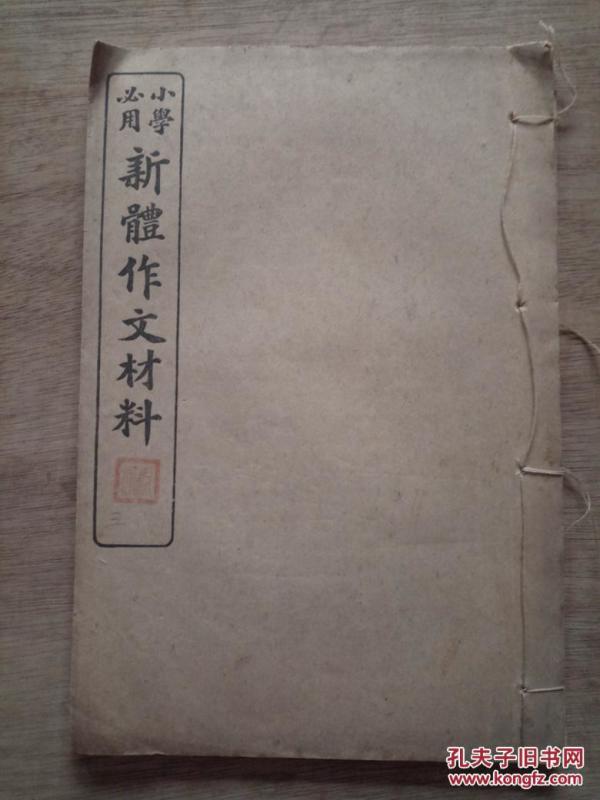 小學
必用
新體作文材料
三
孔夫子旧书网
www.kongfz.com